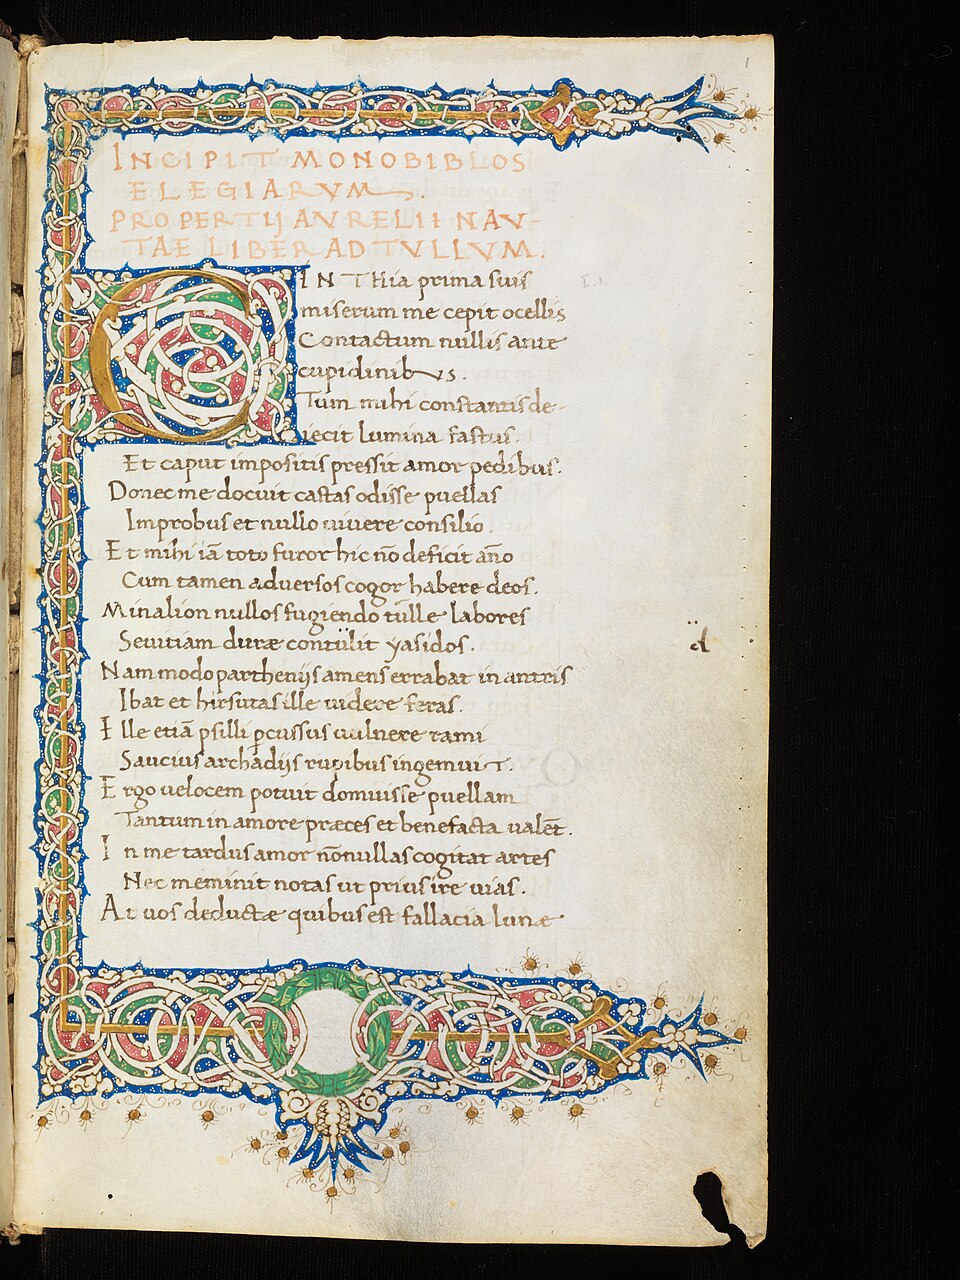 1
INCIPIT MONOBIBLOS
ELEGIARVM.
PROPERTIJ AVRELII NAV-
TAE LIBER AD TVLLVM.
CINTHia prima suis
miserum me cepit ocellis
Contactum nullis ante
cupidinibus.
Tum mihi constantis de-
iecit lumina fastus.
Et caput impositis pressit amor pedibus.
Donec me docuit castas odisse puellas
Improbus et nullo uiuere consilio.
Et mihi iā toto furor hic nō deficit año
Cum tamen adversos cogor habere deos.
Minalion nullos fugiendo tulle labores
Seuitiam duræ contulit yasidos.
Nam modo parthenijs amens errabat in antris
Ibat et hirsutas ille uidere feras.
Ille etiā psilli pcussus uulnere rami
Saucius archadijs rupibus ingemuit.
Ergo uelocem potuit domuisse puellam
Tantum in amore præces et benefacta ualēt.
In me tardus amor nōnullas cogitat artes
Nec meminit notas ut prius ire uias.
At uos deductæ quibus est fallacia lunæ